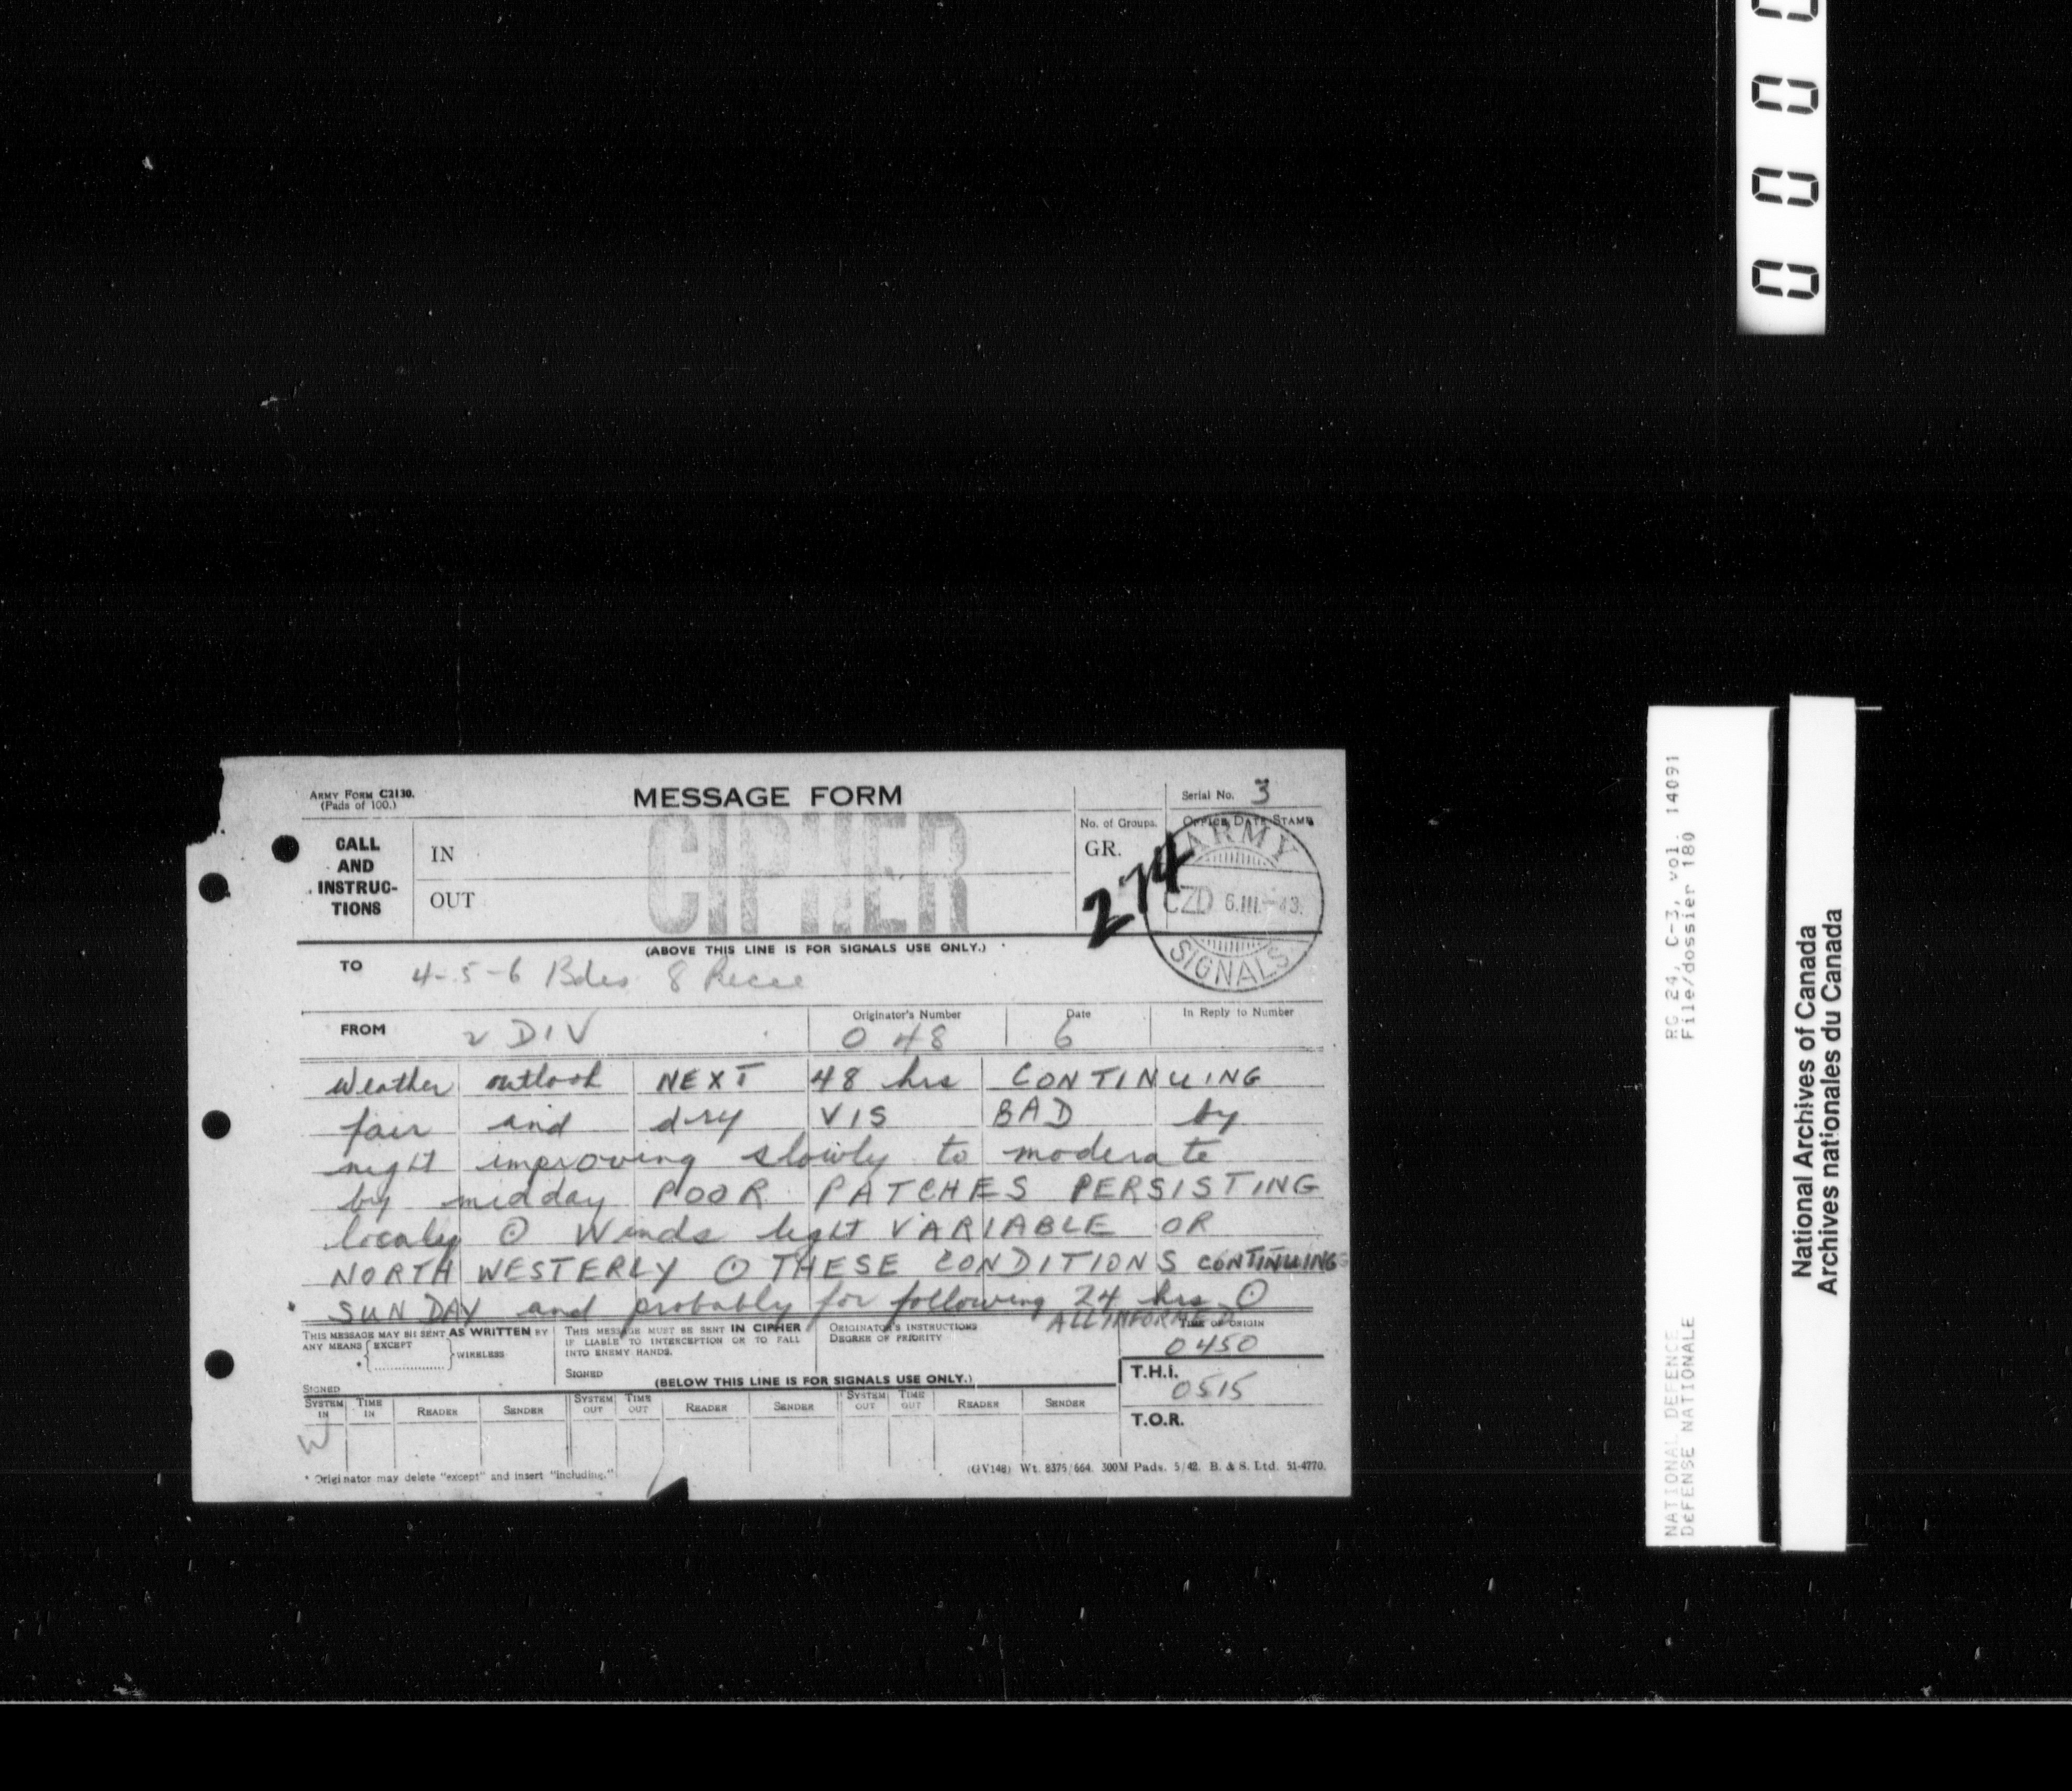 0 0 0
ARMY FORM C2130.
(Pads of 100.)
MESSAGE FORM
Serial No. 3
CALL AND INSTRUC-TIONS
IN
OUT
CIPHER
No. of Groups.
GR.
274
OFFICE DATE STAMP
ARMY
CZD 6.III.-43.
SIGNALS
(ABOVE THIS LINE IS FOR SIGNALS USE ONLY.)
TO 4-5-6 Bdes 8 Recce
FROM 2 DIV
Originator's Number 0 48
Date 6
In Reply to Number
Weather outlook NEXT 48 hrs CONTINUING
fair and dry VIS BAD by
night improving slowly to moderate
by midday POOR PATCHES PERSISTING
localy ⊙ Winds light VARIABLE OR
NORTH WESTERLY ⊙ THESE CONDITIONS CONTINUING
SUNDAY and probably for following 24 hrs ⊙
ALL INFORMED
THIS MESSAGE MAY BE SENT AS WRITTEN BY
ANY MEANS { EXCEPT
* ................ } WIRELESS
SIGNED
THIS MESSAGE MUST BE SENT IN CIPHER
IF LIABLE TO INTERCEPTION OR TO FALL
INTO ENEMY HANDS.
SIGNED
ORIGINATOR'S INSTRUCTIONS
DEGREE OF PRIORITY
TIME OF ORIGIN
0450
T.H.I.
0515
T.O.R.
(BELOW THIS LINE IS FOR SIGNALS USE ONLY.)
SYSTEM IN TIME IN READER SENDER SYSTEM OUT TIME OUT READER SENDER SYSTEM OUT TIME OUT READER SENDER
W
* Originator may delete "except" and insert "including."
(GV148) Wt. 8375/664. 300M Pads. 5/42. B. & S. Ltd. 51-4770.
NATIONAL DEFENCE RG 24, C-3, vol. 14091
DEFENSE NATIONALE File/dossier 180
National Archives of Canada
Archives nationales du Canada